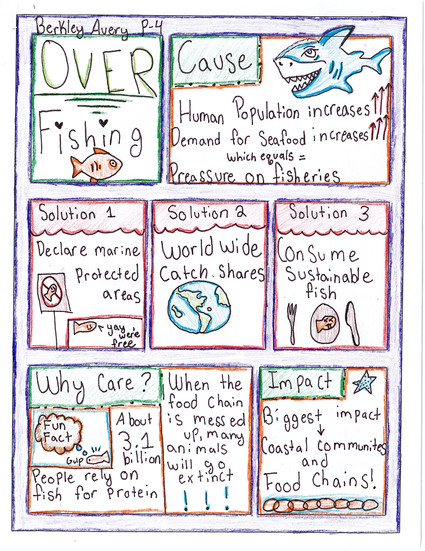 Berkley Avery P-4
OVER
Fishing
Cause
Human Population increases
Demand for Seafood increases
which equals =
Preassure on fisheries
Solution 1
Declare marine
Protected
areas
yay
we're
free
Solution 2
World Wide
Catch Shares
Solution 3
Consume
Sustainable
fish
Why Care?
Fun
Fact
Gulp
About
3.1
billion
People rely on
fish for Protein
When the
food chain
is messed
up, many
animals
will go
extinct
! ! ! !
Impact
Biggest impact
Coastal Communites
and
Food Chains!